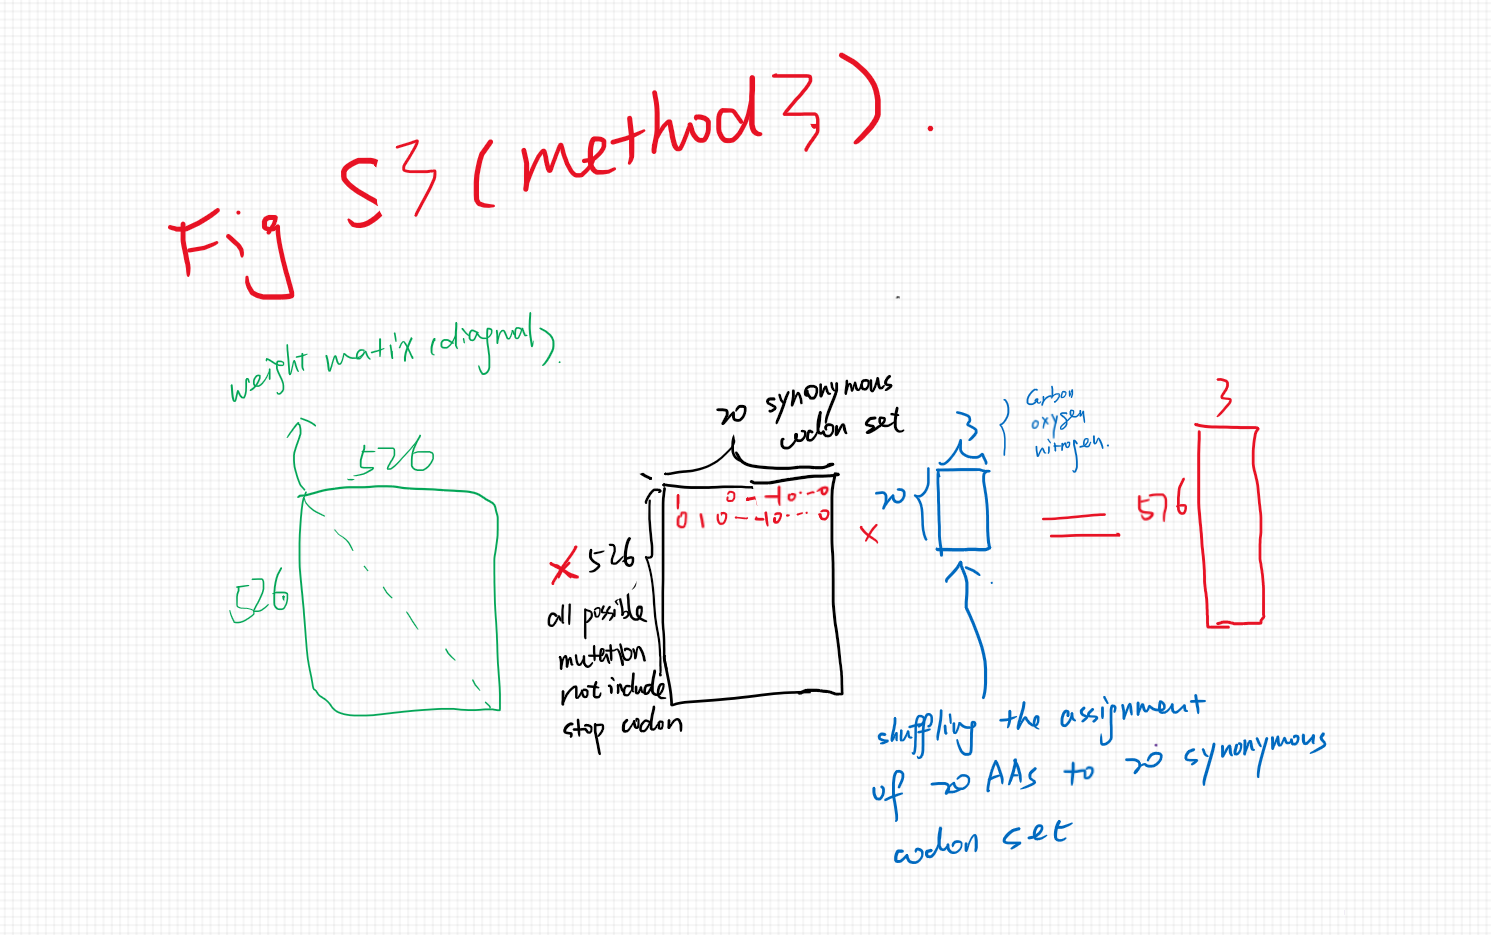 Fig S3 (method 3).
weight matix (diagnal).
526
526
20 synonymous
codon set
1 0 - - -1 0 - - - 0
0 1 0 - - - -1 0 - - - 0
x 526
all possible
mutation
not include
stop codon
x
20
3
Carbon
oxygen
nitrogen.
=
576
3
shuffling the assignment
of 20 AAs to 20 synonymous
codon set